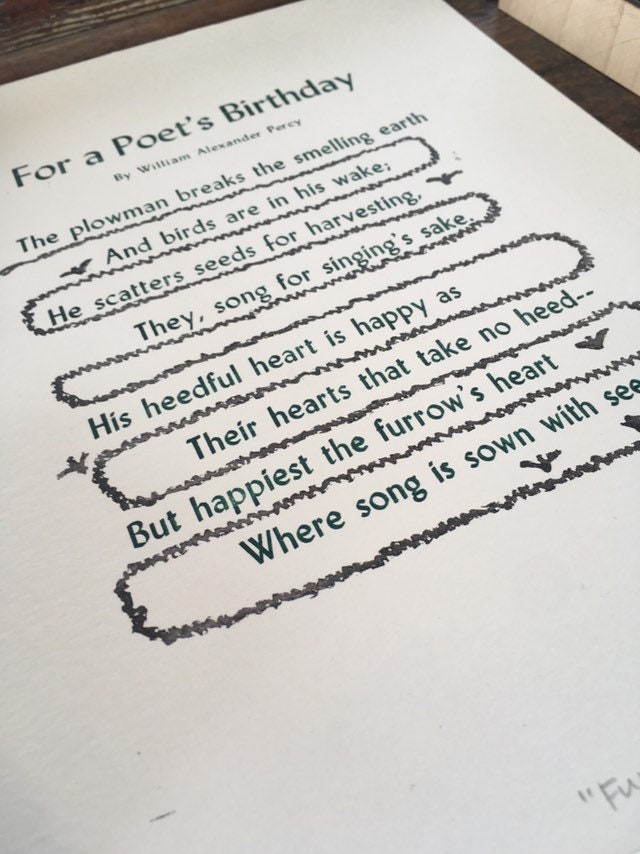 For a Poet's Birthday
By William Alexander Percy
The plowman breaks the smelling earth
And birds are in his wake;
He scatters seeds for harvesting,
They, song for singing's sake.
His heedful heart is happy as
Their hearts that take no heed--
But happiest the furrow's heart
Where song is sown with see
"Fu